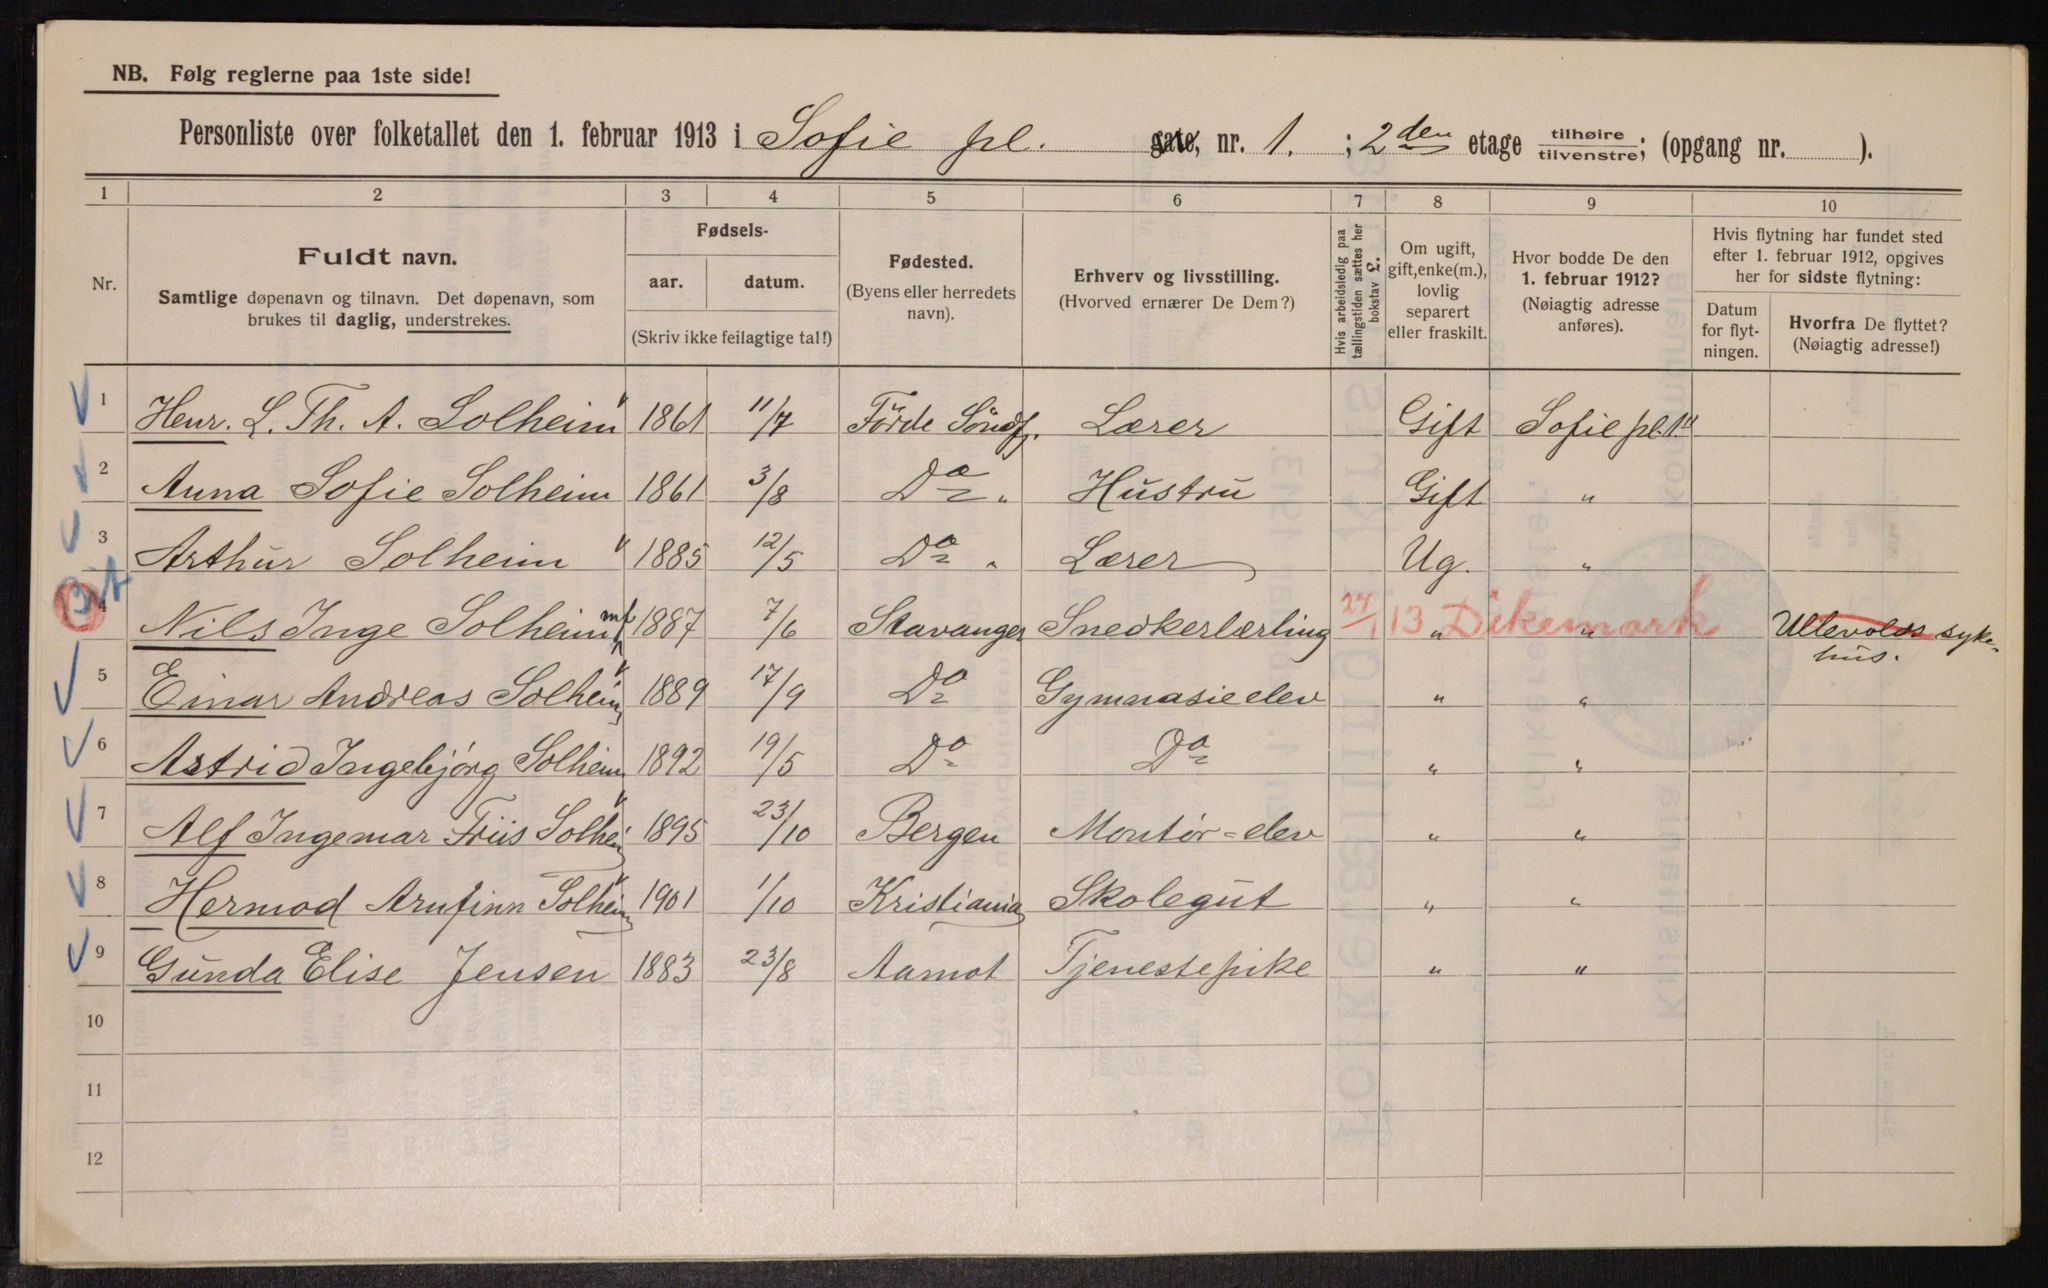 NB. Følg reglerne paa 1ste side!
Personliste over folketallet den 1. februar 1913 i Sofie pl. gate, nr. 1. ; 2den etage tilhøire tilvenstre; (opgang nr. ).
1 2 3 4 5 6 7 8 9 10
Nr.
Fuldt navn.
Samtlige døpenavn og tilnavn. Det døpenavn, som
brukes til daglig, understrekes.
Fødsels-
aar. datum.
(Skriv ikke feilagtige tal!)
Fødested.
(Byens eller herredets
navn).
Erhverv og livsstilling.
(Hvorved ernærer De Dem?)
Hvis arbeidsledig paa
tællingstiden sættes her
bokstav L.
Om ugift,
gift, enke(m.),
lovlig
separert
eller fraskilt.
Hvor bodde De den
1. februar 1912?
(Nøiagtig adresse
anføres).
Hvis flytning har fundet sted
efter 1. februar 1912, opgives
her for sidste flytning:
Datum
for flyt-
ningen.
Hvorfra De flyttet?
(Nøiagtig adresse!)
1 Henr. L. Th. A. Solheim 1861 11/7 Förde Söndf. Lærer Gift Sofie pl. 1 II
2 Anna Sofie Solheim 1861 3/8 Do " Hustru Gift "
3 Arthur Solheim 1885 12/5 Do " Lærer Ug. "
4 Nils Inge Solheim mf 1887 7/6 Stavanger Snedkerlærling 24/1 13 " Dikemark " Ullevolds syke-
hus.
5 Einar Andreas Solheim 1889 17/9 Do Gymnasieelev " "
6 Astrid Ingebjörg Solheim 1892 19/5 Do Do " "
7 Alf Ingemar Friis Solheim 1895 23/10 Bergen Montör-elev " "
8 Hermod Arnfinn Solheim 1901 1/10 Kristiania Skolegut " "
9 Gunda Elise Jensen 1883 23/8 Aamot Tjenestepike " "
10
11
12